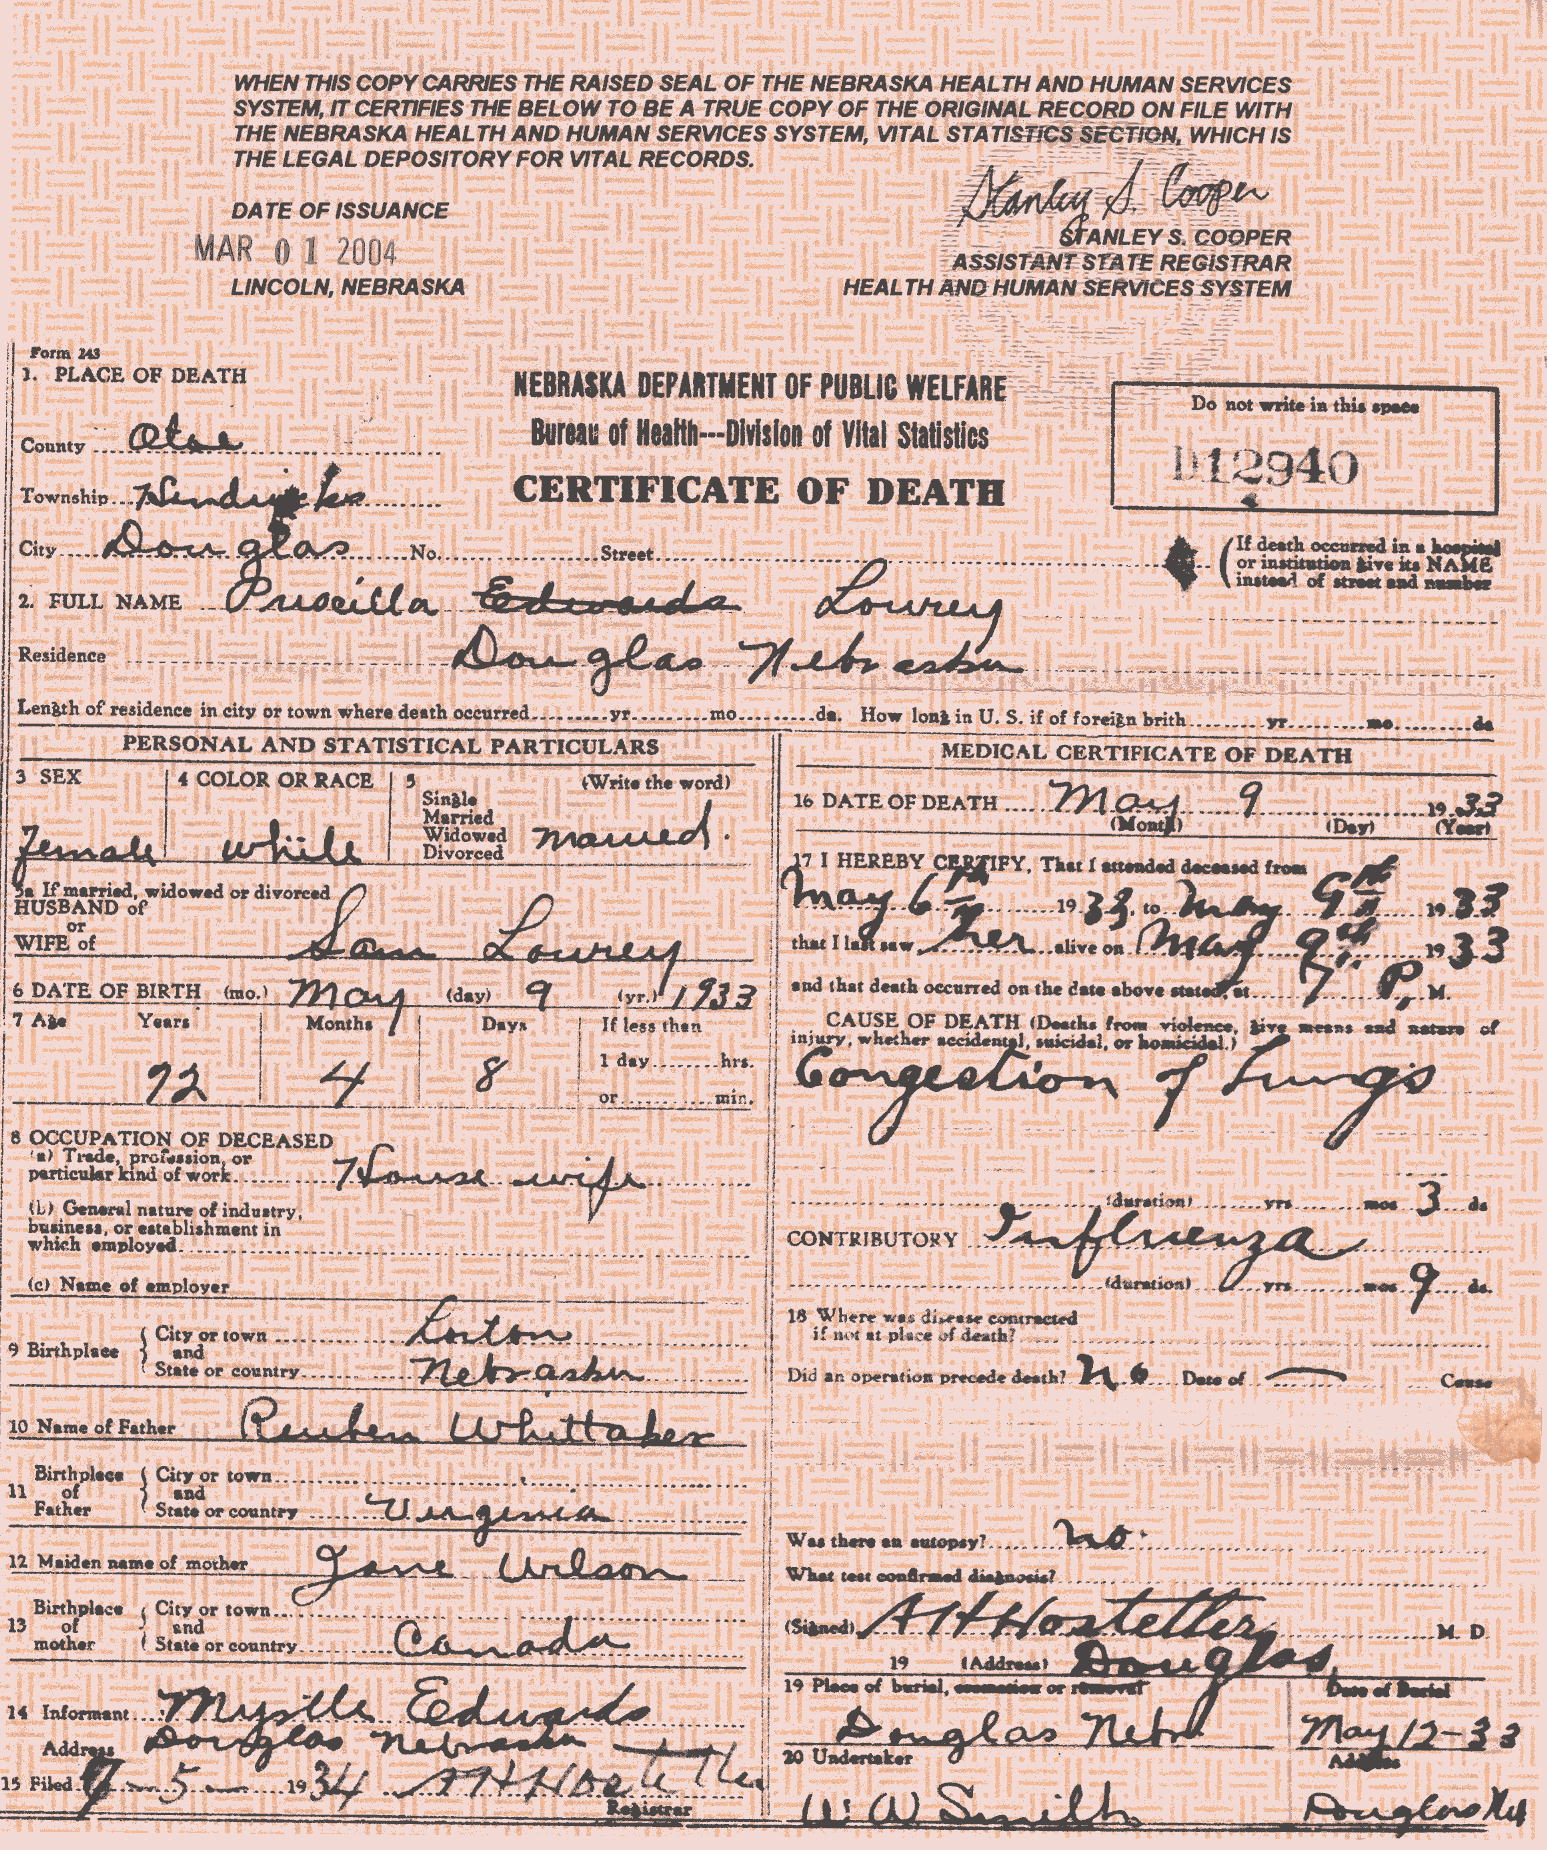 WHEN THIS COPY CARRIES THE RAISED SEAL OF THE NEBRASKA HEALTH AND HUMAN SERVICES
SYSTEM, IT CERTIFIES THE BELOW TO BE A TRUE COPY OF THE ORIGINAL RECORD ON FILE WITH
THE NEBRASKA HEALTH AND HUMAN SERVICES SYSTEM, VITAL STATISTICS SECTION, WHICH IS
THE LEGAL DEPOSITORY FOR VITAL RECORDS.
DATE OF ISSUANCE
MAR 01 2004
LINCOLN, NEBRASKA
Stanley S. Cooper
STANLEY S. COOPER
ASSISTANT STATE REGISTRAR
HEALTH AND HUMAN SERVICES SYSTEM
Form 243
1. PLACE OF DEATH
County Otoe
Township Hendricks
NEBRASKA DEPARTMENT OF PUBLIC WELFARE
Bureau of Health---Division of Vital Statistics
CERTIFICATE OF DEATH
Do not write in this space
D12940
City Douglas No. Street
(If death occurred in a hospital
or institution give its NAME
instead of street and number
2. FULL NAME Priscilla Edwards Lowrey
Residence Douglas Nebraska
Length of residence in city or town where death occurred yr. mo. ds. How long in U. S. if of foreign brith yr. mo. ds
PERSONAL AND STATISTICAL PARTICULARS
3 SEX
Female
4 COLOR OR RACE
White
5 (Write the word)
Single
Married
Widowed
Divorced
married.
5a If married, widowed or divorced
HUSBAND of
or
WIFE of Sam Lowrey
6 DATE OF BIRTH (mo.) May (day) 9 (yr.) 1933
7 Age Years Months Days If less than
1 day hrs.
72 4 8 or min.
8 OCCUPATION OF DECEASED
(a) Trade, profession, or
particular kind of work House wife
(b) General nature of industry,
business, or establishment in
which employed
(c) Name of employer
9 Birthplace { City or town Lorton
and
State or country Nebraska
10 Name of Father Reuben Whittaker
11 Birthplace of Father { City or town
and
State or country Virginia
12 Maiden name of mother Jane Wilson
13 Birthplace of mother { City or town
and
State or country Canada
14 Informant Myrtle Edwards
Address Douglas Nebraska
15 Filed 7 - 5 - 1934 AH Hostetter
Registrar
MEDICAL CERTIFICATE OF DEATH
16 DATE OF DEATH May 9 1933
(Month) (Day) (Year)
17 I HEREBY CERTIFY, That I attended deceased from
May 6th 1933, to May 9th 1933
that I last saw her alive on May 9th 1933
and that death occurred on the date above stated, at 7 P, M.
CAUSE OF DEATH (Deaths from violence, give means and nature of
injury, whether accidental, suicidal, or homicidal.)
Congestion of Lungs
(duration) yrs mos 3 ds
CONTRIBUTORY Influenza
(duration) yrs mos 9 ds.
18 Where was disease contracted
if not at place of death?
Did an operation precede death? No Date of — Cause
Was there an autopsy? no.
What test confirmed diagnosis?
(Signed) AH Hostetter M. D
19 (Address) Douglas,
19 Place of burial, cremation or removal Date of Burial
Douglas Nebr May 12-33
20 Undertaker Address
W. W. Smith Douglas Neb